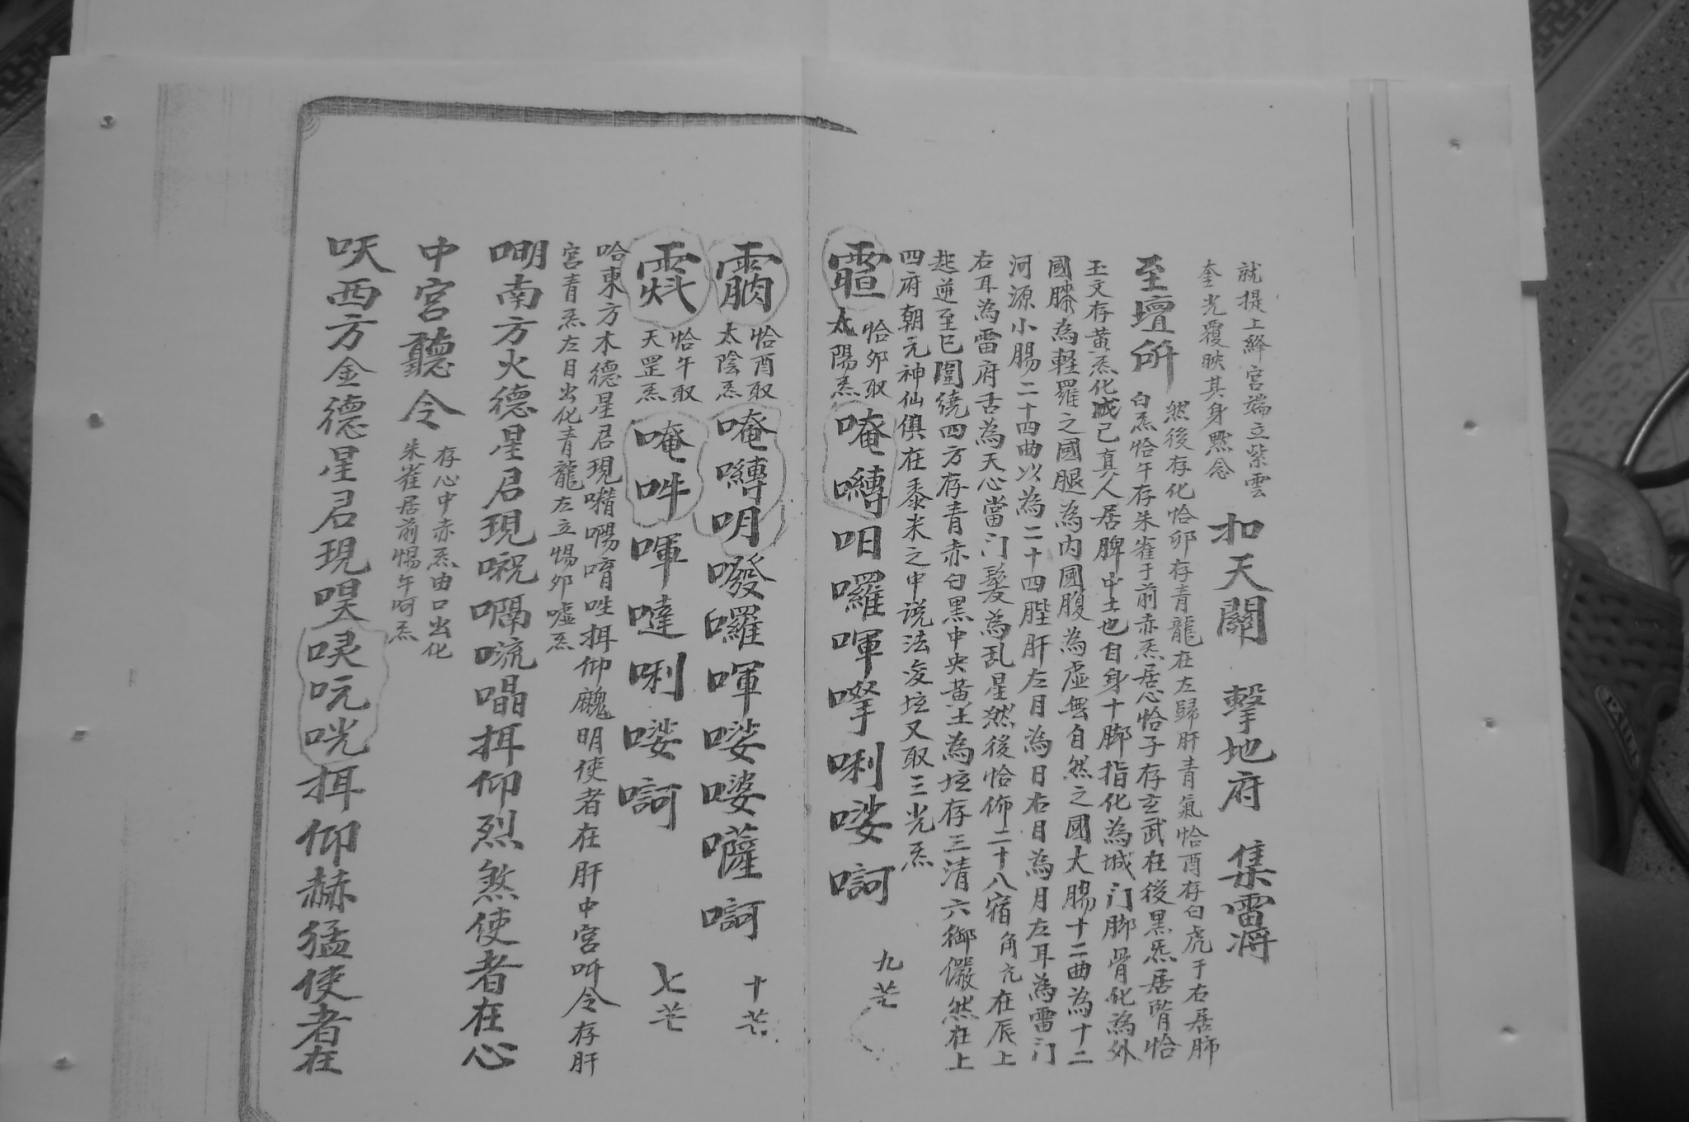 就提上絳宮端立紫雲
奎光覆映其身黙念
扣天關 擊地府 集雷將
然後存化恰卯存青龍在左歸肝青氣恰酉存白虎于右居肺
至壇所
白炁恰午存朱雀于前赤炁居心恰子存玄武在後黑炁居腎恰
玉文存黃炁化成己真人居脾中土也自身十脚指化為城门脚骨化為外
國膝為軽羅之國腿為内國腹為虛無自然之國大腸十二曲為十二
河源小腸二十四曲以為二十四陛肝左目為日右目為月左耳為雷门
右耳為雷府舌為天心當门髮為乱星然後恰佈二十八宿角亢在辰上
起逆至巳圍繞四方存青赤白黒中央黃土為坛存三清六御儼然在上
四府朝元神仙俱在黍米之中说法变坛又取三光炁
恰卯取
太陽炁
唵囀呬囉㖇㗚唎娑訶
九芒
恰酉取
太陰炁
唵囀明㗶囉㖇娑婆薩訶
十芒
恰午取
天罡炁
唵吽㖇噠唎娑訶
七芒
哈東方木德星君現噆啺唷哇揖仰魑明使者在肝中宮听令存肝
宮青炁左目出化青龍左立惕卯噓炁
嘲南方火德星君現㖠嗝㖼唱揖仰烈煞使者在心
中宮聽令
存心中赤炁由口出化
朱雀居前惕午呵炁
吙西方金德星君現㖘㖊吭咣揖仰赫猛使者在